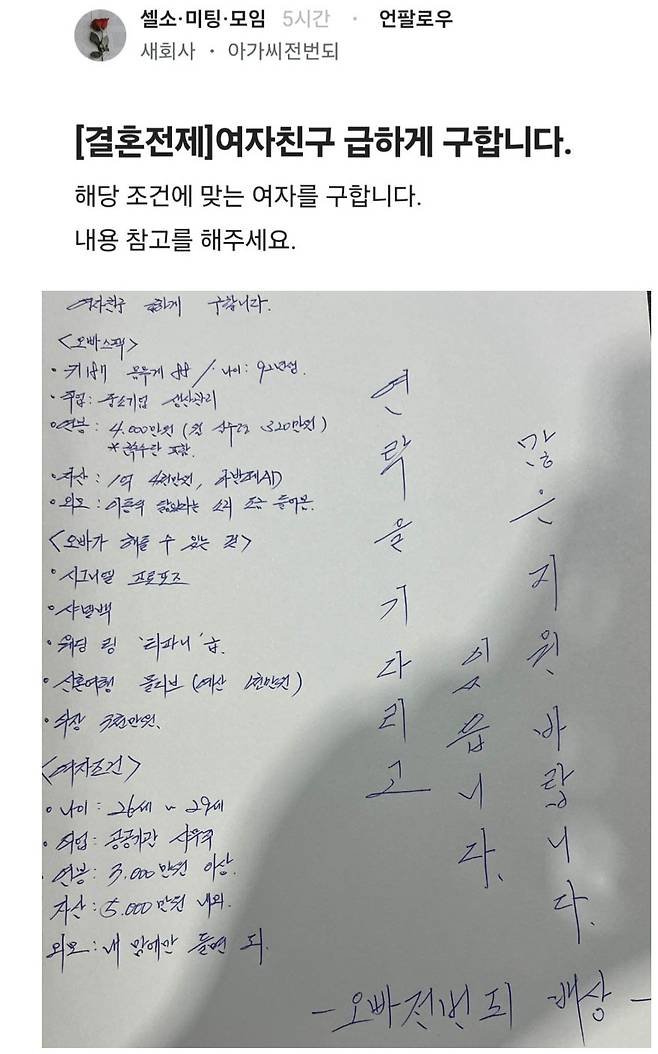 셀소·미팅·모임 5시간 · 언팔로우
새회사 · 아가씨전번되
[결혼전제]여자친구 급하게 구합니다.
해당 조건에 맞는 여자를 구합니다.
내용 참고를 해주세요.
여자친구 급하게 구합니다.
<오빠스펙>
· 키 몸무게 / 나이: 92년생.
· 직업: 중소기업 생산관리
· 연봉: 4.000만원 (월 실수령 320만원)
* 포함.
· 자산: 1억 4천만원,
· 외모: 이동욱 닮았다는 소리 조금 들어봄.
<오빠가 해줄 수 있는 것>
· 시그니엘 프로포즈
· 샤넬백
· 웨딩 링 '티파니'급.
· 신혼여행 몰디브 (예산 1천만원)
·
<여자조건>
· 나이: 26세 ~ 29세
· 직업: 공공기관 사무직
· 연봉: 3.000만원 이상.
자산: 5.000만원 내외.
외모: 내 맘에만 들면 되.
연락을 기다리고
있읍니다.
많은 지원 바랍니다.
- 오빠전번되 배상 -